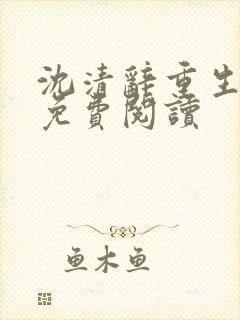 沈清辭重生
免費閱讀
魚木魚